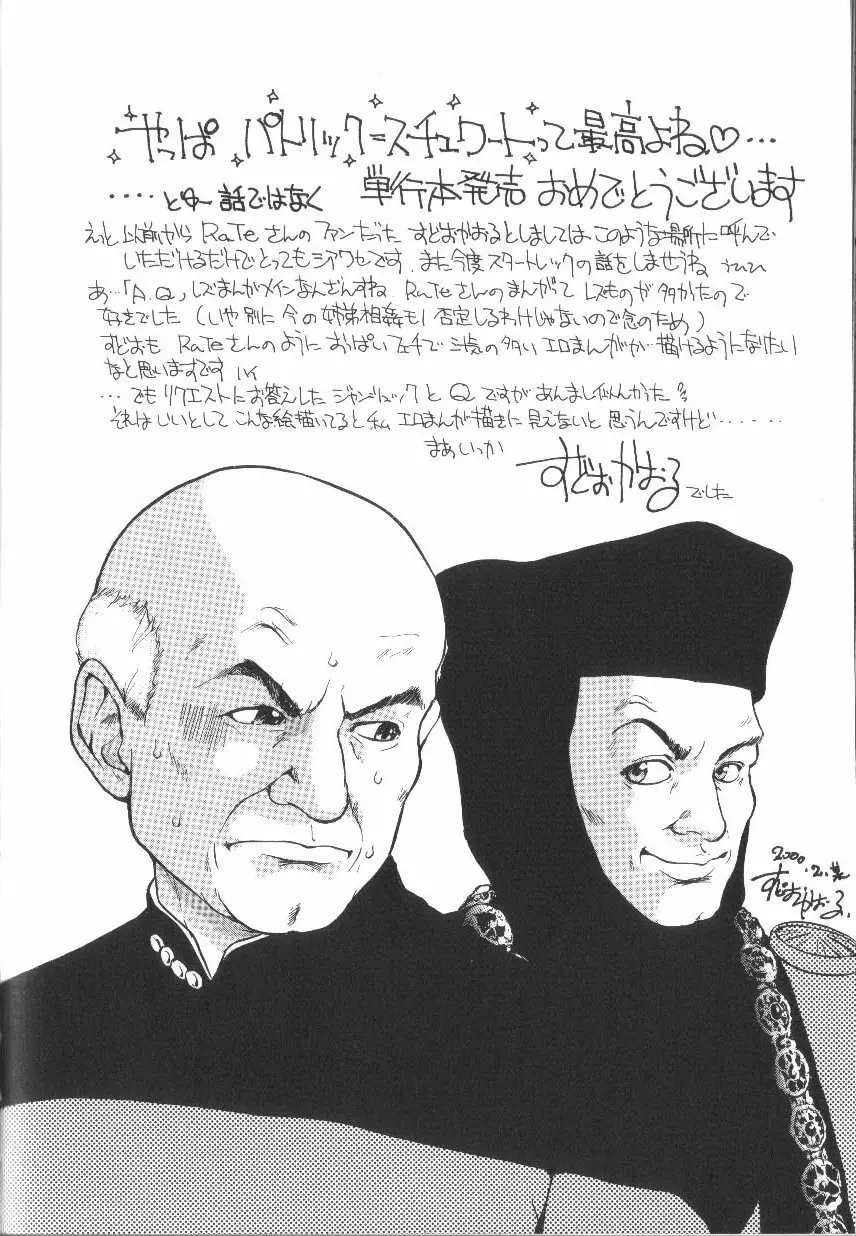 やっぱ パトリック=スチュワートって最高よね♡…
‥‥とゆー話ではなく 単行本発売 おめでとうございます
えっと 以前から RaTeさんのファンだった すどおかおるとしましては、このような場所に呼んで
いただけるだけでとってもシアワセです。また今度スタートレックの話をしませうね うひひ
あ…「A.Q」レズまんがメインなんざんすね。RaTeさんのまんがって レズものが多かたので
好きでした(いや別に今の姉弟相姦も否定しるわけじゃないので念のため)
すどおも RaTeさんのように おっぱいフェチで 汁気の多い エロまんがが 描けるようになりたい
なと思いますです ハイ
…でもリクエストにお答えした ジャン=リュックと Q ですが あんまし似んかった
それはいいとして こんな絵描いてると私 エロまんが描きに見えないと思うんですけど‥‥‥
まあいっか
すどおかおる でした
2000.2.
すどおかおる.